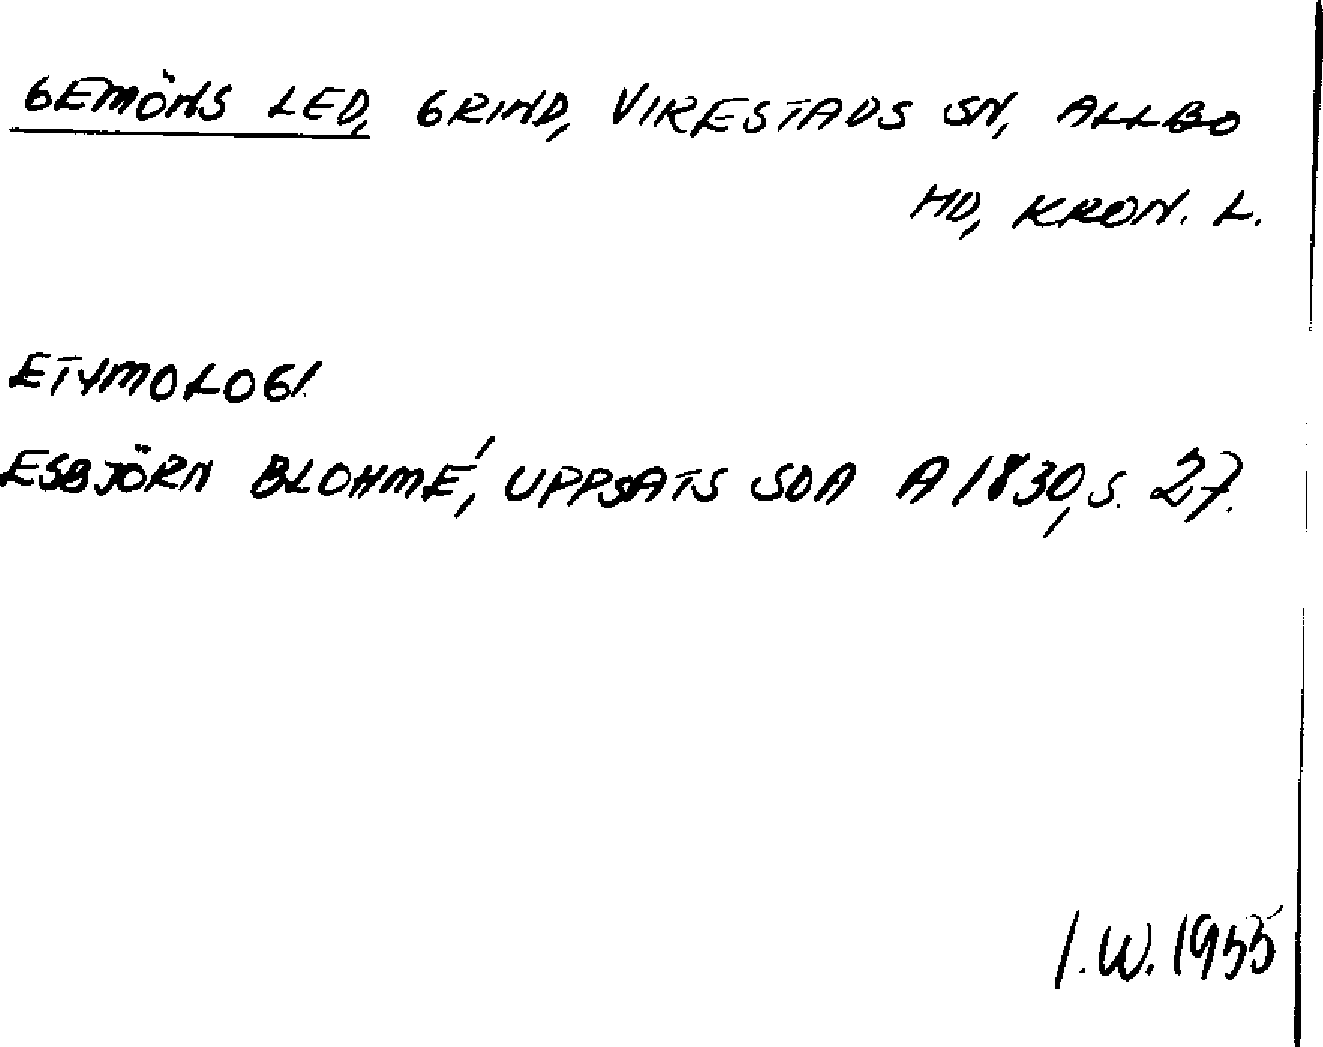 GEMÖNS LED, GRIND, VIRESTADS SN, ALLBO
HD, KRON. L.
ETYMOLOGI.
ESBJÖRN BLOHMÉ, UPPSATS SOA A 1830, S. 27.
I.W. 1955